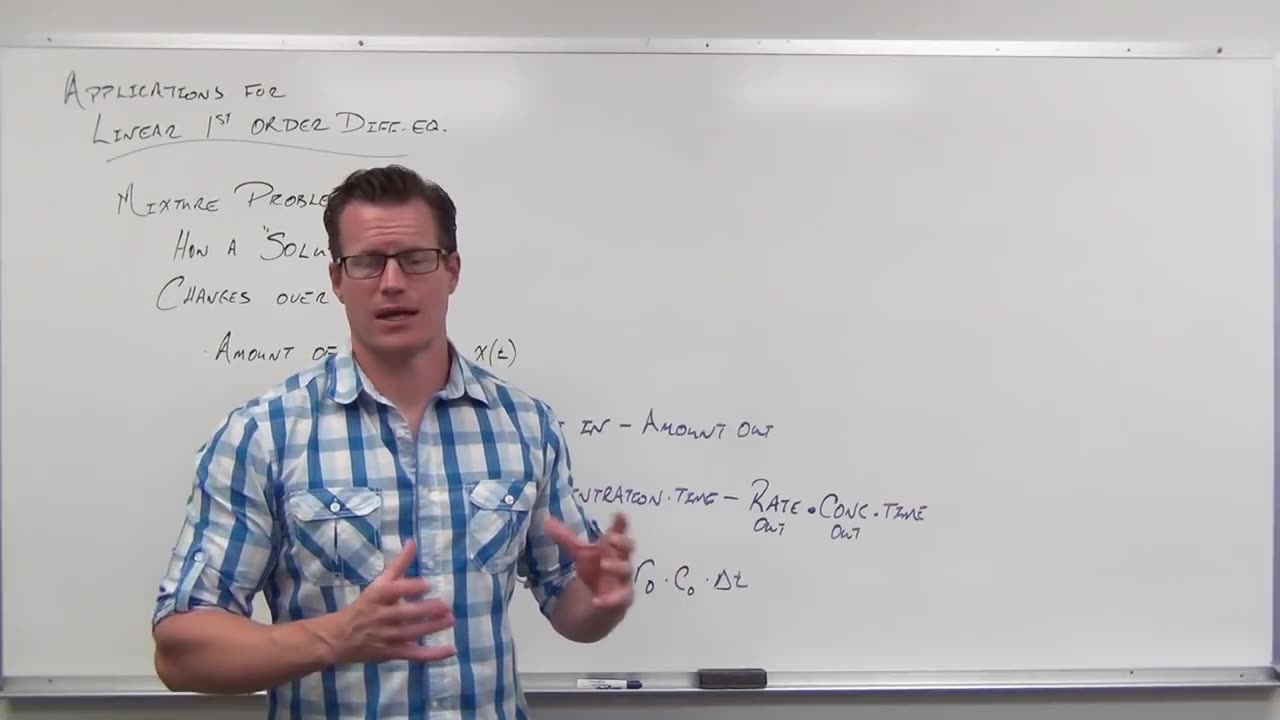 APPLICATIONS FOR
LINEAR 1ST ORDER DIFF. EQ.
MIXTURE PROBLE
HOW A "SOLU
CHANGES OVER
· AMOUNT OF x(t)
IN - AMOUNT OUT
NTRATION · TIME - RATE · CONC · TIME
OUT OUT
r₀ · C₀ · Δt